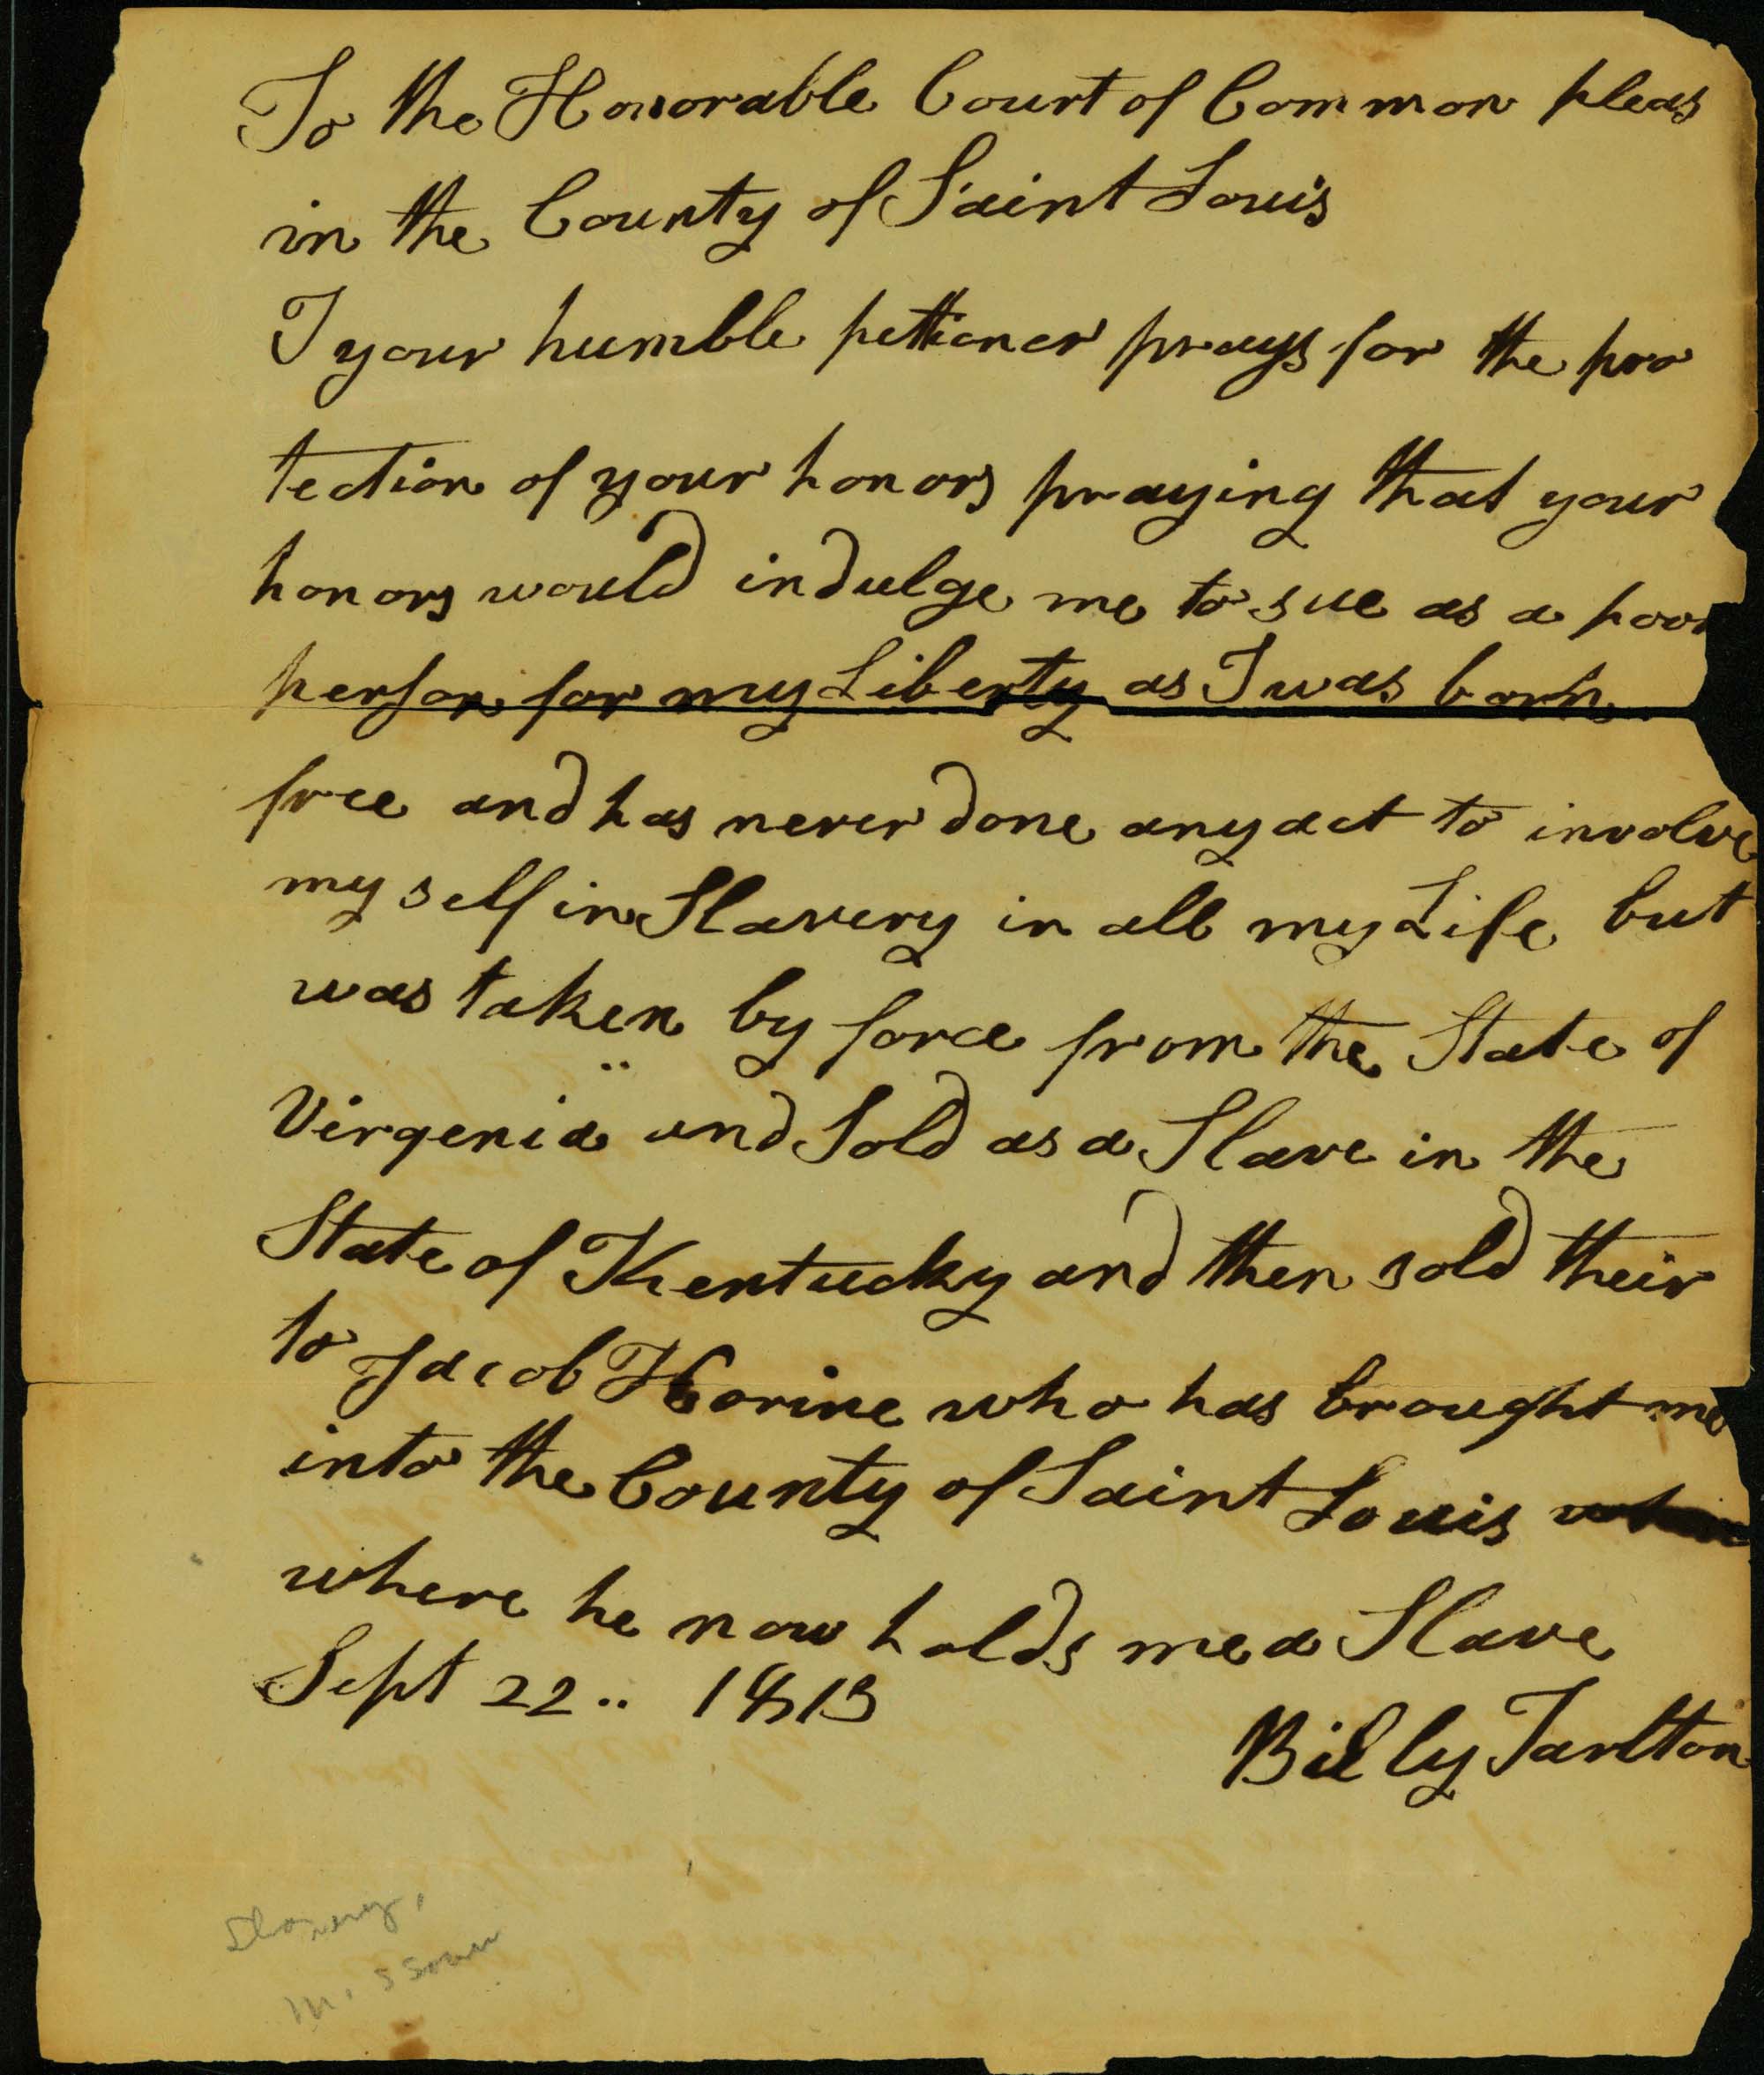 To the Honorable Court of Common pleas
in the County of Saint Louis
I your humble pettioner prays for the pro
tection of your honors praying that your
honors would indulge me to sue as a poor
person for my Liberty as I was born
free and has never done any act to involve
my self in Slavery in all my Life but
was taken by force from the State of
Virgenia and Sold as a Slave in the
State of Kentucky and then sold their
to Jacob Horine who has brought me
into the County of Saint Louis
where he now holds me a Slave
Sept 22.. 1813
Billy Tarlton
Slavery,
Missouri